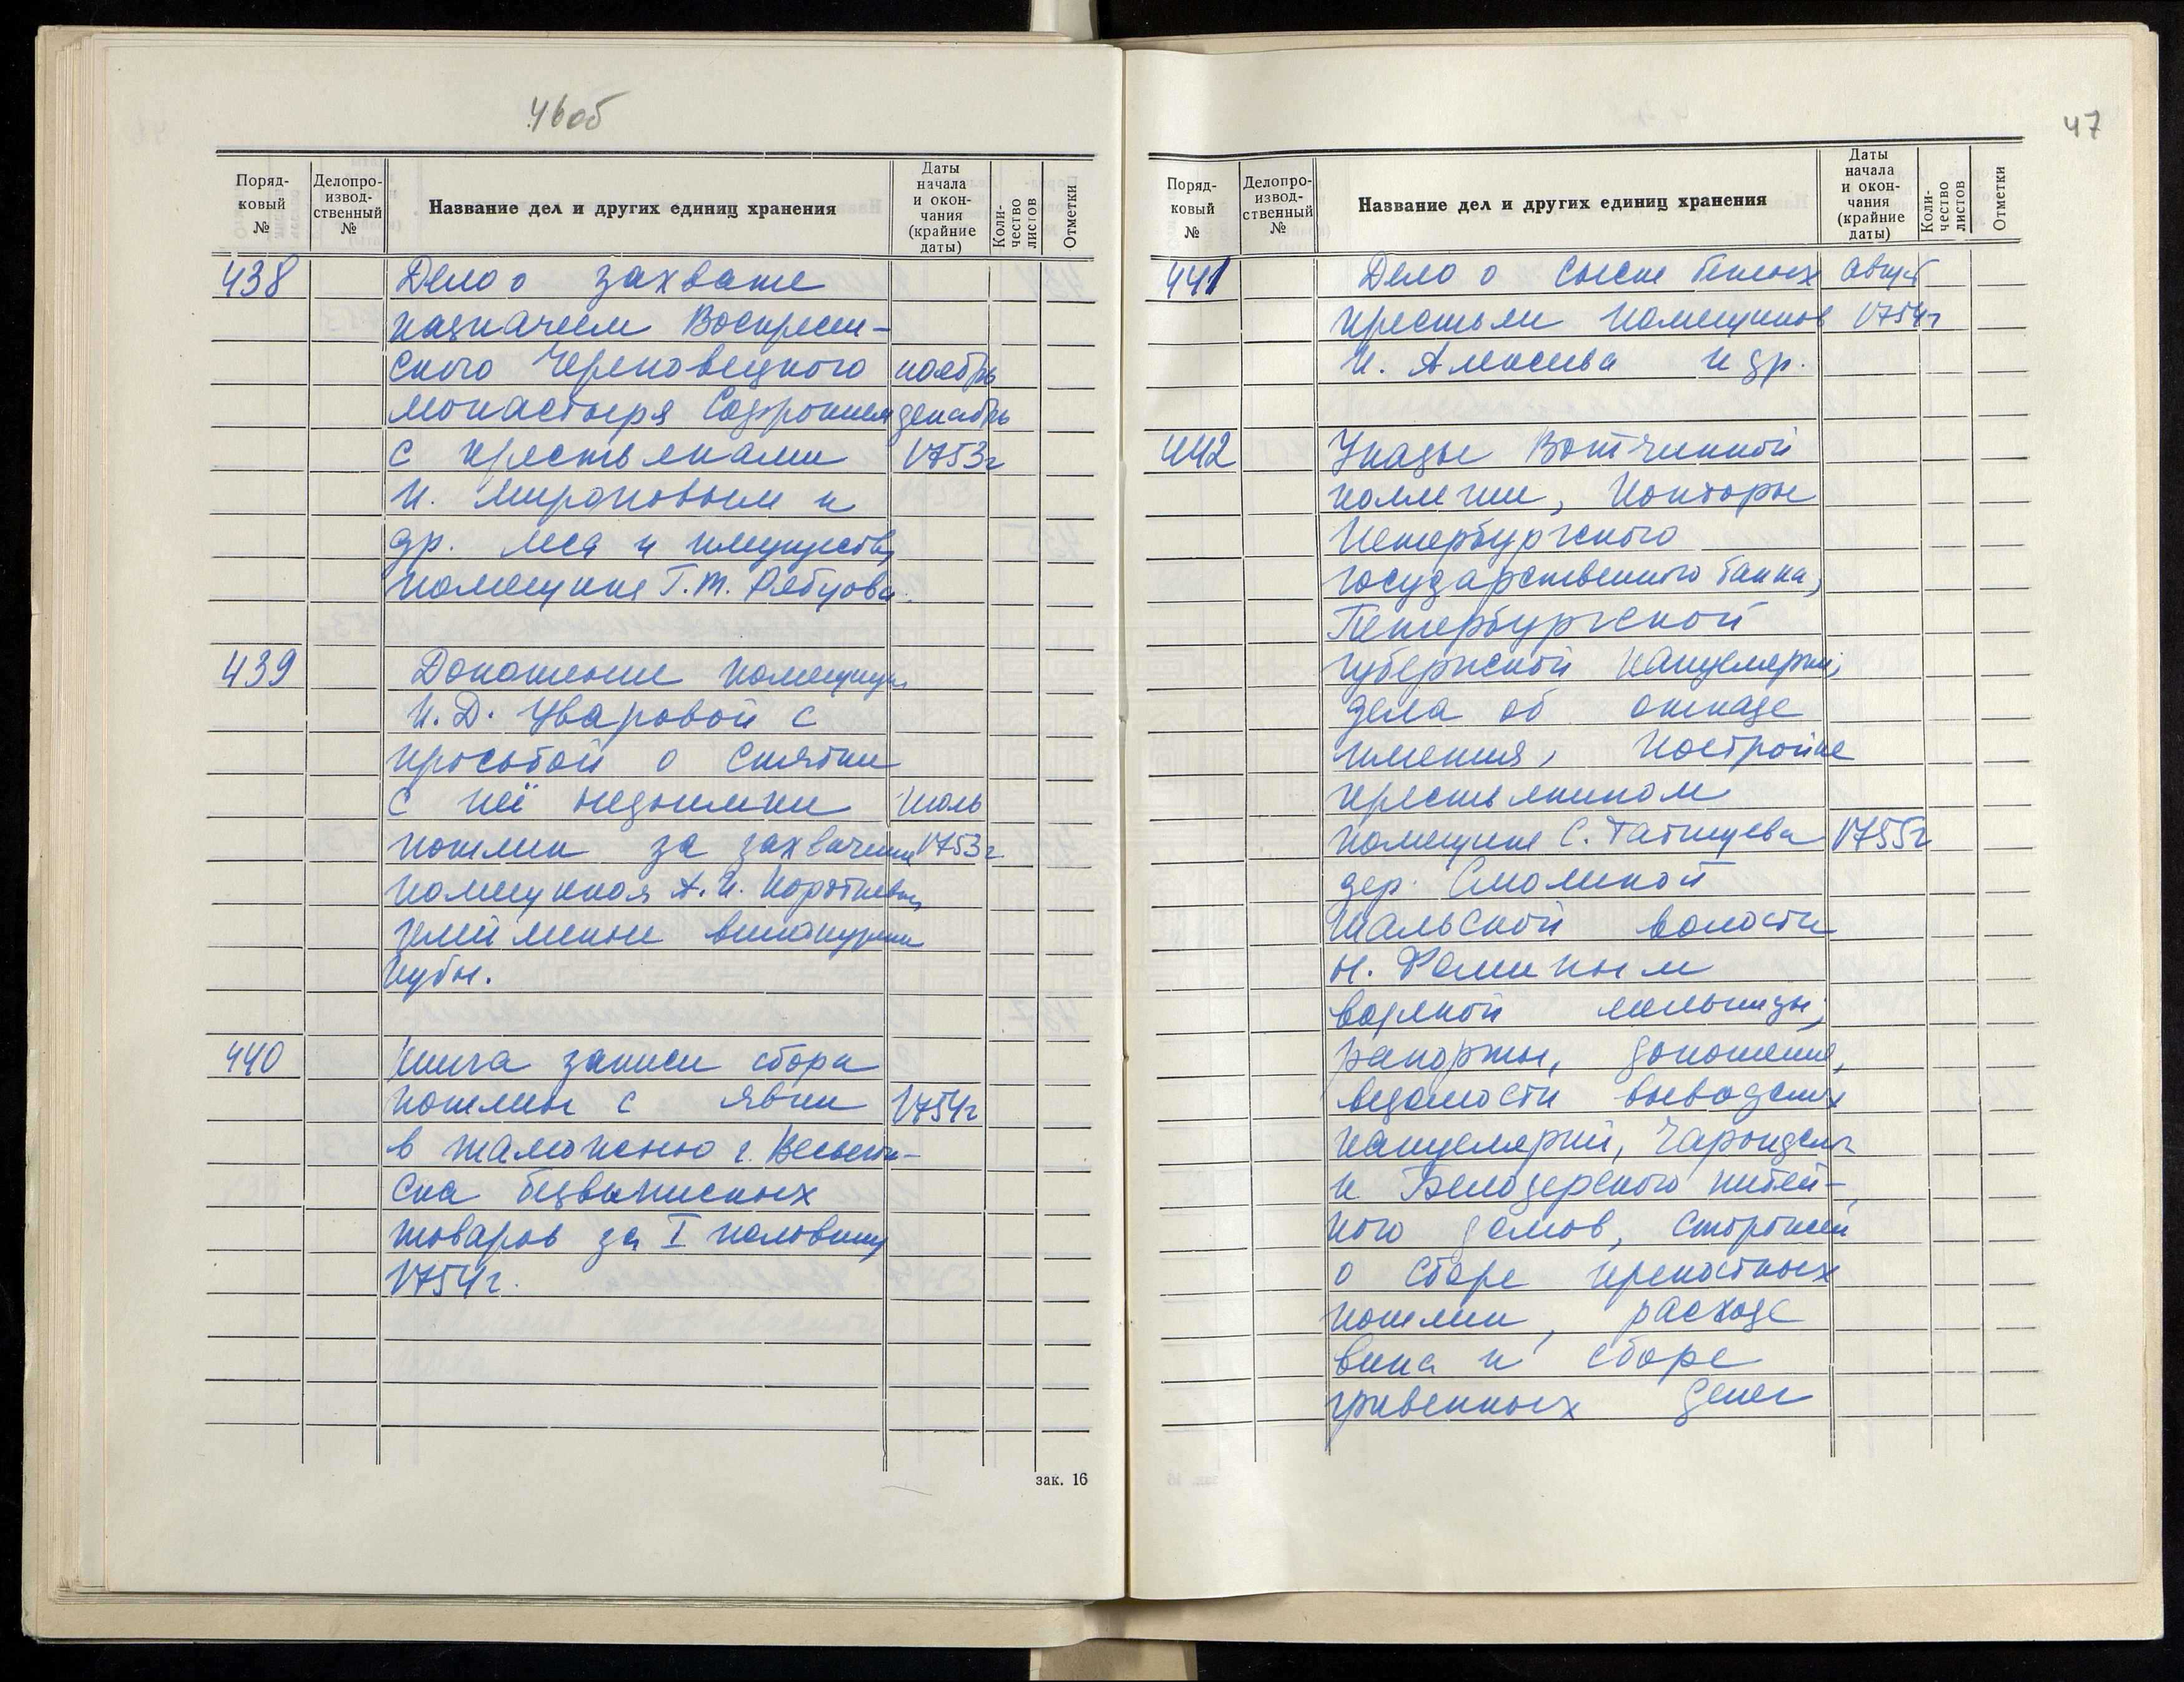 46об
Поряд-
ковый
№
Делопро-
извод-
ственный
№
Название дел и других единиц хранения
Даты
начала
и окон-
чания
(крайние
даты)
Коли-
чество
листов
Отметки
438
Дело о захвате
казначеем Воскресен-
ского Череповецкого ноябрь
монастыря Софронием декабрь
с крестьянами 1753г
И. Мироновым и
др. леса и имущества
помещика Г.Т. Рябцова.
439
Доношение помещицы
И.Д. Уваровой с
просьбой о снятии
с неё недоимки июль
пошлин за захваченные 1753г
помещиком А.И.
ценй менои винокурни
кубы.
440
Книга записи сбора
пошлин с явки 1754г
в таможню г. Весьегон-
ска безвыписных
товаров за I половину
1754г.
зак. 16
47
Поряд-
ковый
№
Делопро-
извод-
ственный
№
Название дел и других единиц хранения
Даты
начала
и окон-
чания
(крайние
даты)
Коли-
чество
листов
Отметки
441
Дело о сыске беглых август
крестьян помещиков 1754г
И. Алексеева и др.
442
Указы Вотчинной
коллегии, Конторы
Петербургского
государственного банка,
Петербургской
губернской канцелярии;
дела об отказе
имения, постройке
крестьянином
помещика С. Татищева 1755г
дер. Смолиной
Шальской волости
Н. Фоминым
водяной мельницы;
рапорты, доношения,
ведомости воеводских
канцелярий, Чарондск.
и Белозерского питей-
ного домов, сторожей
о сборе крепостных
пошлин, расходе
вина и сборе
гривенных денег